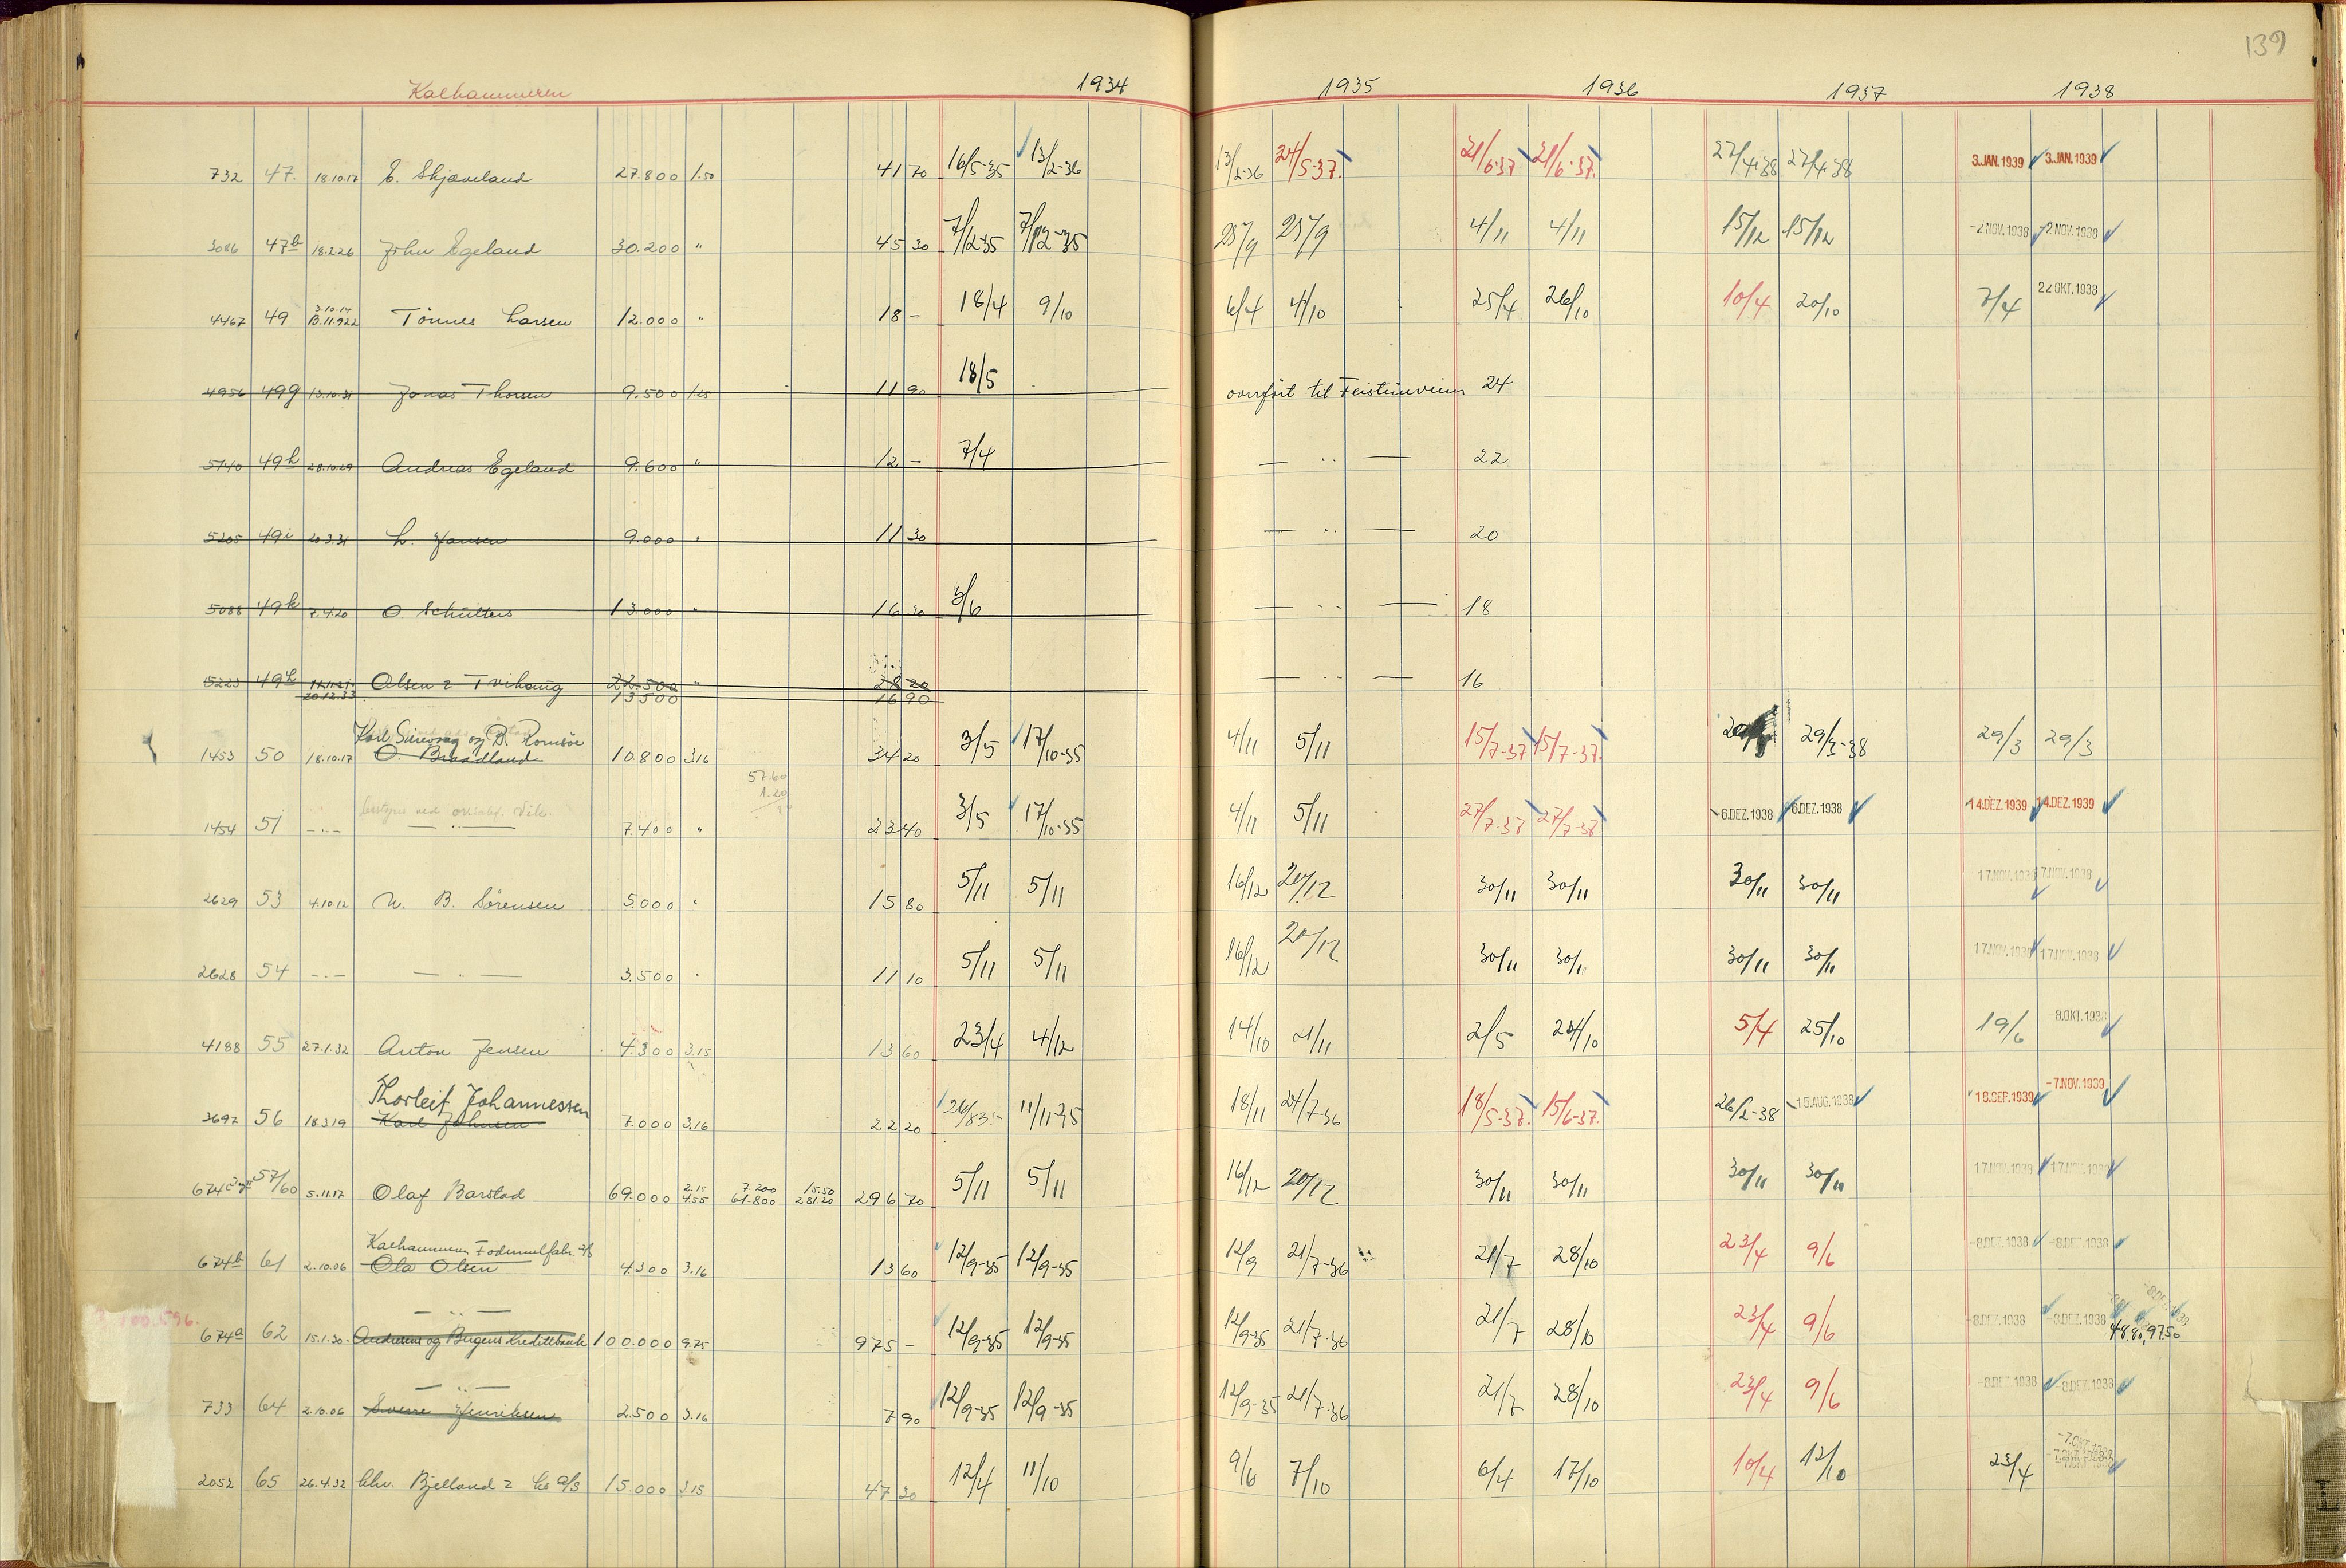 139
Kalhammeren 1934 1935 1936 1937 1938
732 47. 18.10.17 E. Skjæveland 27.800 1.50 41 70 16/5-35 13/2-36 13/2-36 24/5-37. 21/6-37 21/6-37. 27/4-38 27/4-38 3. JAN. 1939 3. JAN. 1939
3086 47b 18.2.26 John Egeland 30.200 " 45 30 7/12-35 7/12-35 25/9 25/9 4/11 4/11 15/12 15/12 -2 NOV. 1938 -2 NOV. 1938
3.10.14
4467 49 B.11.922 Tönnes Larsen 12.000 " 18 - 18/4 9/10 6/4 4/10 25/4 26/10 10/4 20/10 7/4 22 OKT. 1938
4956 49g 13.10.31 Jonas Thorsen 9.500 1.25 11 90 18/5 overfört til Feisteinveien 24
5140 49h 28.10.29 Andreas Egeland 9.600 " 12 - 7/4 — ·· — 22
5205 49i 20.3.31 L. Jansen 9.000 " 11 30 — ·· — 20
5088 49k 7.4.20 O. Schulters 13.000 " 16 30 5/6 — ·· — 18
5223 49l Olsen & Tvihaug 22.500 " 28 20 — ·· — 16
20.12.33 13500 16 90
Karl Sirevaag og D. Romsöe
1453 50 18.10.17 O. Braadland 10.800 3.16 34 20 3/5 17/10-35 4/11 5/11 15/7-37 15/7-37. 29/3-38 29/3 29/3
57.60
1.20
1454 51 -·- — ·· — 7.400 " 23 40 3/5 17/10-35 4/11 5/11 27/7-37 27/7-37 -6. DEZ. 1938 -6. DEZ. 1938 14. DEZ. 1939 14. DEZ. 1939
2629 53 4.10.12 N. B. Sörensen 5.000 " 15 80 5/11 5/11 16/12 20/12 30/11 30/11 30/11 30/11 17. NOV. 1938 17. NOV. 1938
2628 54 -·- — · — 3.500 " 11 10 5/11 5/11 16/12 20/12 30/11 30/11 30/11 30/11 17. NOV. 1938 17. NOV. 1938
4188 55 27.1.32 Anton Jensen 4.300 3.15 13 60 23/4 4/12 14/10 21/11 2/5 24/10 5/4 25/10 19/6 8. OKT. 1938
Thorleif Johannessen
3697 56 18.3.19 Karl Johnsen 7.000 3.16 22 20 26/8 35 11/11-35 18/11 24/7-36 18/5-37. 15/6-37. 26/2-38 15. AUG. 1938 18. SEP. 1939 -7. NOV. 1939
674 57/60 5.11.17 Olaf Barstad 69.000 2.15 4.55 7.200 61.800 15.50 281.20 296 70 5/11 5/11 16/12 20/12 30/11 30/11 30/11 30/11 17. NOV. 1938 17. NOV. 1938
Kalhammeren Fodermelfabr. A/S
674b 61 2.10.06 Ola Olsen 4.300 3.16 13 60 12/9-35 12/9-35 12/9 21/7-36 21/7 28/10 23/4 9/6 -8. DEZ. 1938 -8. DEZ. 1938
— ·· —
674a 62 15.1.30. Andresens og Bergens Kreditbank 100.000 9.75 975 - 12/9-35 12/9-35 12/9-35 21/7-36 21/7 28/10 23/4 9/6 -8. DEZ. 1938 -8. DEZ. 1938
— ·· —
733 64 2.10.06 Sverre Henriksen 2.500 3.16 7 90 12/9-35 12/9-35 12/9-35 21/7-36 21/7 28/10 23/4 9/6 -8. DEZ. 1938 -8. DEZ. 1938
2052 65 26.4.32 Chr. Bjelland & Co A/S 15.000 3.15 47 30 12/4 11/10 9/6 7/10 6/4 17/10 10/4 12/10 23/4 -7. OKT. 1938